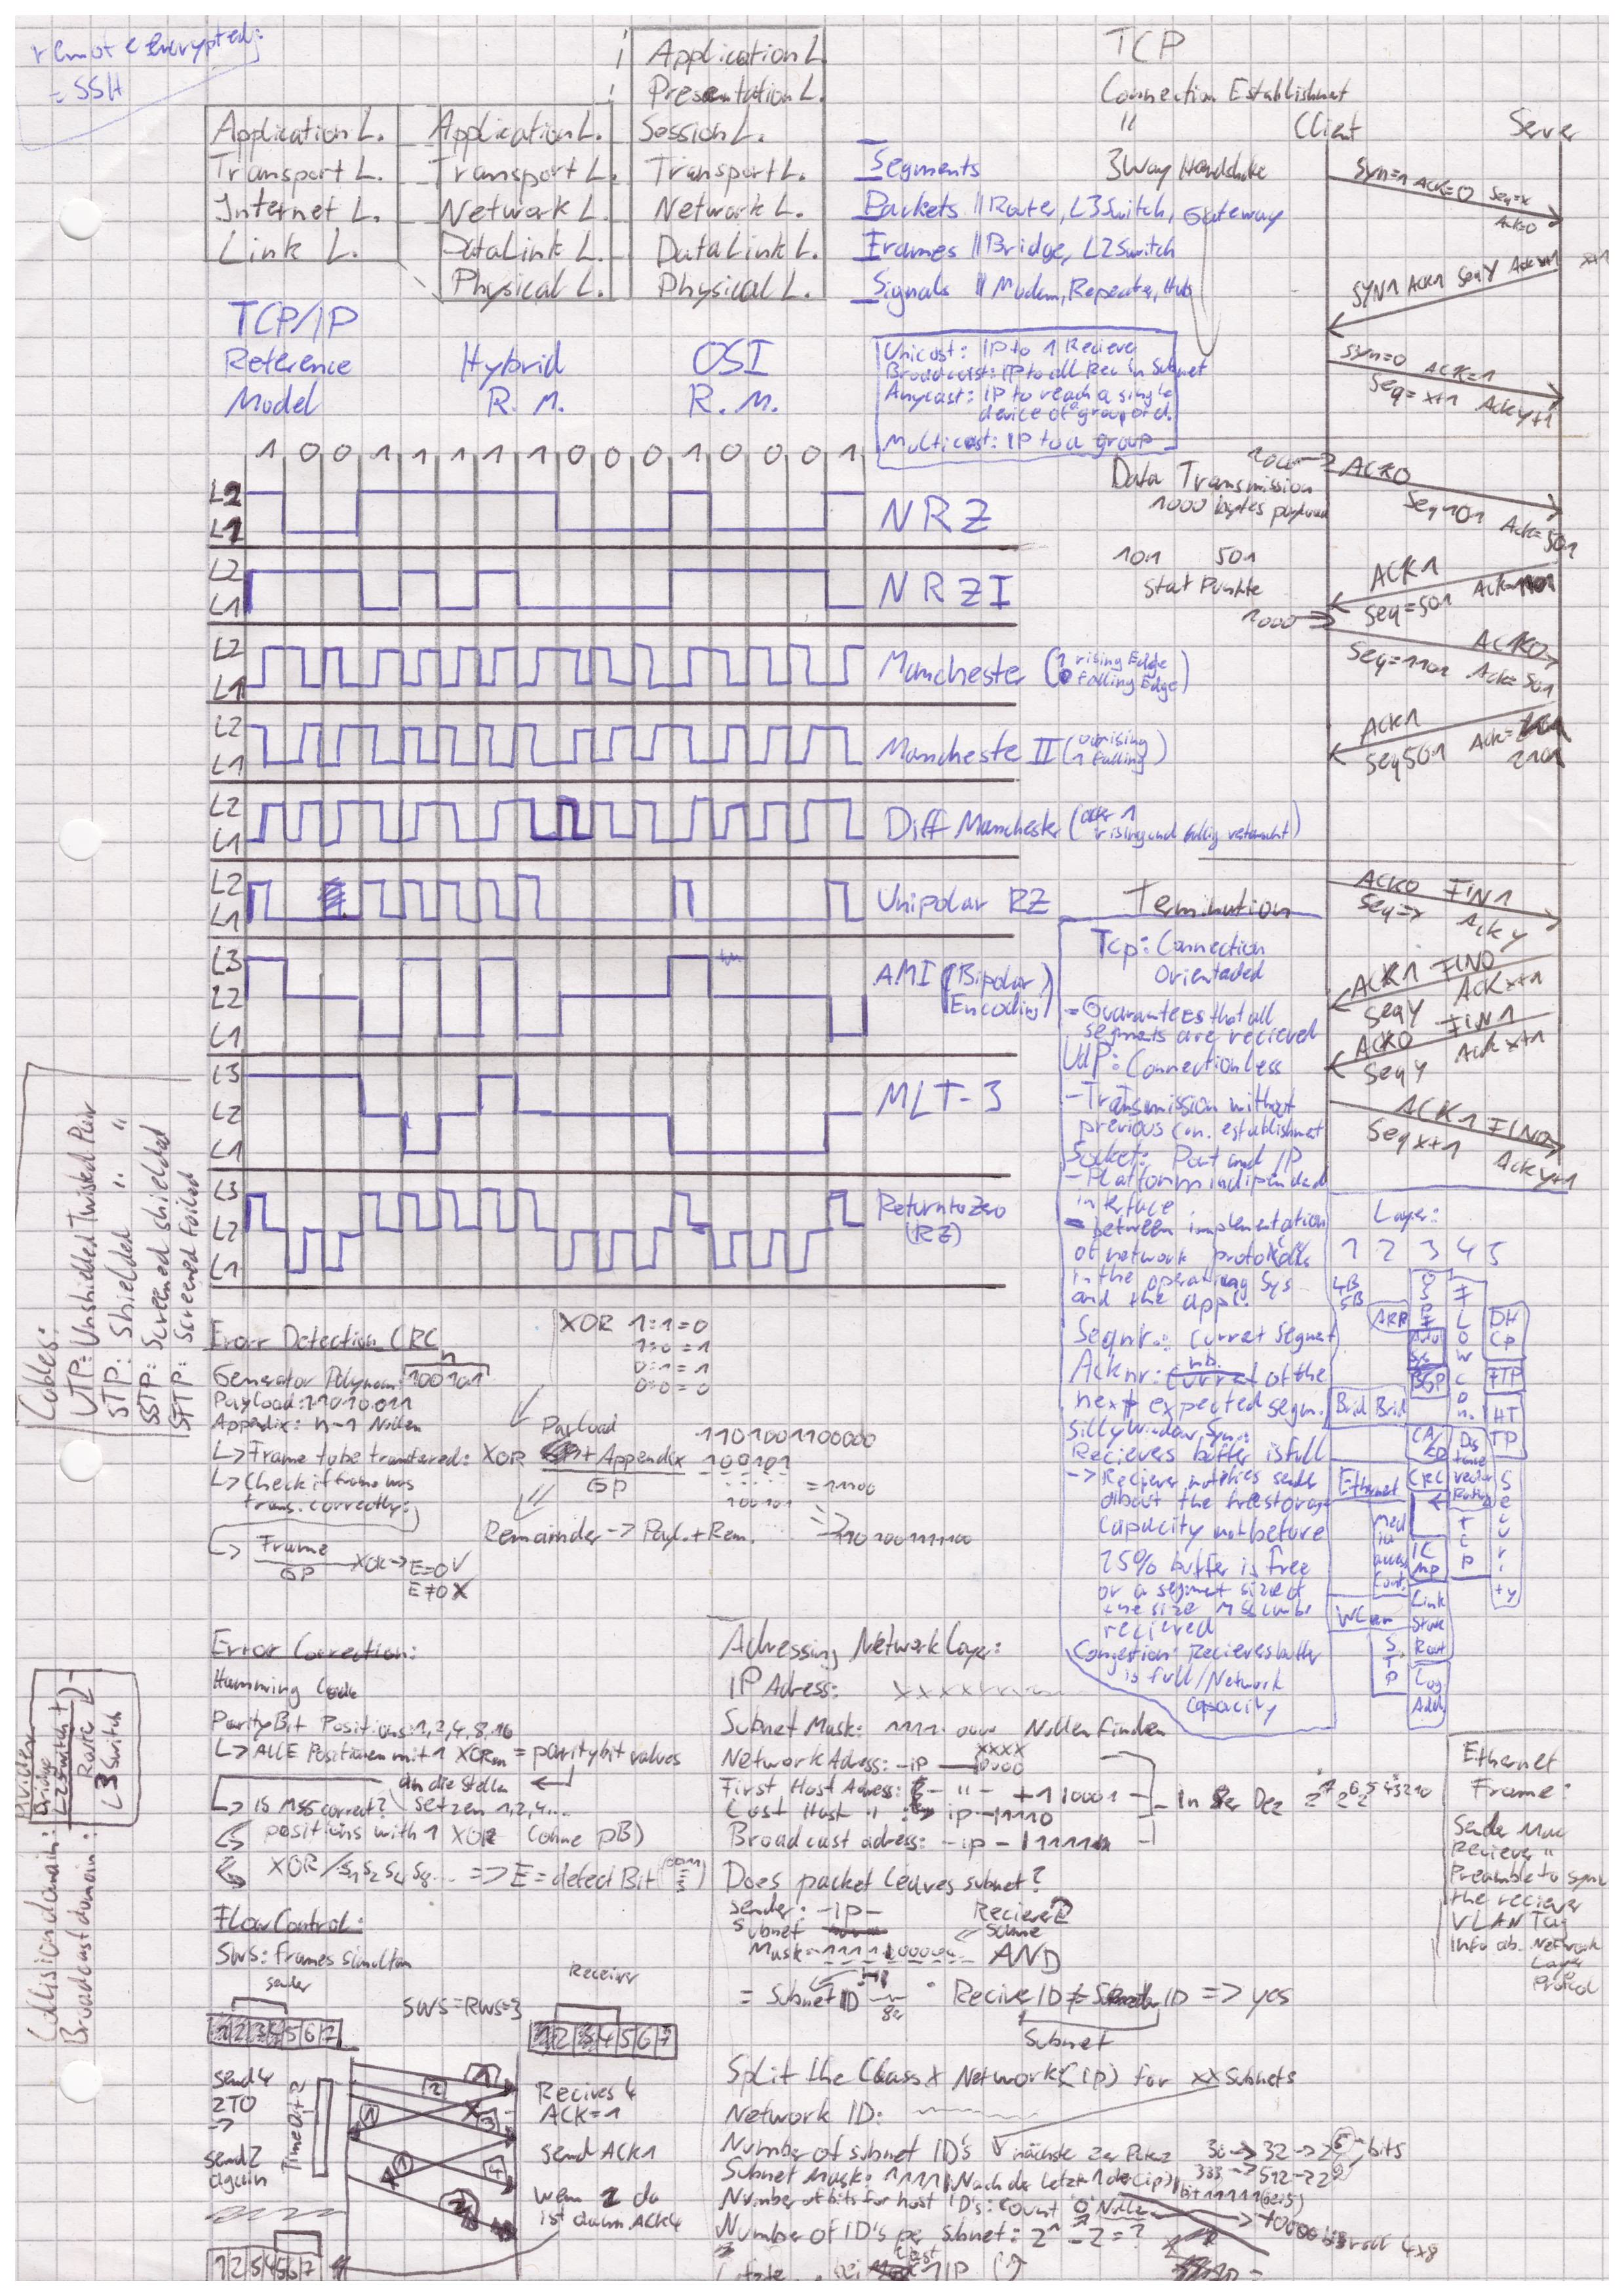 remote encrypted:
= SSH
Application L.
Transport L.
Internet L.
Link L.
TCP/IP
Reference
Model
Application L.
Transport L.
Network L.
DataLink L.
Physical L.
Hybrid
R. M.
Application L.
Presentation L.
Session L.
Transport L.
Network L.
DataLink L.
Physical L.
OSI
R. M.
Segments
Packets || Router, L3Switch, Gateway
Frames || Bridge, L2Switch
Signals || Modem, Repeater, Hub
Unicast: IP to 1 Reciever
Broadcast: IP to all Rec in Subnet
Anycast: IP to reach a single
device of group of d.
Multicast: IP to a group
TCP
Connection Establishment
"
3Way Handshake
Client Server
Syn=1 ACK=0 Seq=x
Ack=0
SYN1 ACK1 SeqY Ackx+1 x+1
Syn=0 ACK=1
Seq=x+1 Acky+1
Data Transmission
1000 bytes payload
101 501
Start Punkte
1000 → ACK0
Seq101 Ack=501
ACK1
Seq=501
1000 →
ACK0
Seq=1101 Ack=501
ACK1
Seq501 Ack=
2101
Termination
ACK0 FIN1
Seq=x Ack y
ACK1 FIN0
SeqY Ackx+1
ACK0 FIN1
SeqY Ackx+1
ACK1 FIN0
Seqx+1 Acky+1
1 0 0 1 1 1 1 1 0 0 0 1 0 0 0 1
L2
L1
NRZ
L2
L1
NRZI
L2
L1
Manchester (1 rising Edge
0 falling Edge)
L2
L1
Mancheste II (0 rising
1 falling)
L2
L1
Diff Manchester (after 1
rising und falling vertauscht)
L2
L1
Unipolar RZ
L3
L2
L1
AMI (Bipolar
Encoding)
L3
L2
L1
MLT-3
L3
L2
L1
Return to Zero
(RZ)
Tcp: Connection
Orientaded
- Guarantees that all
segments are recieved
UdP: Connectionless
- Transmission without
previous con. establishmet
Socket: Port and IP
- Platform indipended
interface
- between implementation
of network protokolls
in the operating Sys
and the appl.
Seqnr.: curret segmet
Acknr: nb. of the
next expected segm.
Silly Window Syn.:
Recievers buffer is full
-> Reciever notifies sender
about the free storage
capacity not before
25% buffer is free
or a segment sized
the size MSS can be
recieved
Congestion: Recievers buffer
is full/Network
capacity
Layer:
1 2 3 4 5
4B
5B
ARP
OSPF
BGP
Flow
Con.
DH
CP
FTP
HT
TP
Brid Brid
CA
CD
Dis
tance
vector
Routing
Ethernet
CRC
Media
access
Cont.
IC
MP
TCP
Security
WLan
Link
State
Rout
STP
Log
Addr
Cables:
UTP: Unshielded Twisted Pair
STP: Shielded " "
SSTP: Screened shielded
SFTP: Screened foiled
Erorr Detection CRC
n
Generator Polynom: 100101
Payload: 11010011
Appendix: n-1 Nullen
↳ Frame to be transfered: XOR
Payload
+ Appendix
GP
↳ Check if frame was
trans. correctly:
↳ Frame
GP
XOR → E=0 ✓
E≠0 X
XOR 1:1=0
1:0=1
0:1=1
0:0=0
1101001100000
100101
100101
= 11100
Remainder -> Payl.+Rem.
Error Correction:
Hamming Code
Parity Bit Positions: 1,2,4,8,16
↳ ALLE Positionen mit 1 XORen = paritybit values
an die Stellen
setzen 1,2,4...
↳ is MSG correct?
positions with 1 XOR (ohne pB)
XOR / S1 S2 S4 S8.... => E = detect Bit
Flow Control:
SWS: frames simultan
sender
Receiver
SWS=RWS=3
1 2 3 4 5 6 7
1 2 3 4 5 6 7
send 4
2TO
->
send2
again
Timeout 2
Recives 4
ACK=1
send ACK1
wenn 2 da
ist dann ACK4
1 2 3 4 5 6 7
Collision domain: Bridge
L2Switch
Broadcast domain: Router
L3 Switch
Adressing Network Layer:
IP Adress: xxxxxxx
Subnet Mask: 1111. 0000 Nullen finden
xxxx
Network Adress: -ip-0000
First Host Adress: - " - +1|0001
Last Host " : ip-1110
Broadcast adress: -ip-|11111
In 8er Dez 2⁷ 2⁶ 2⁵ 4 3 2 1 0
Does packet leaves subnet?
sender: -ip-
Reciever
Subnet
Mask=
same
AND
= Subnet ID
Recive ID ≠ ID => yes
Subnet
Split the Class X Network (ip) for xx Subnets
Network ID:
Number of subnet ID's nächste 2er Potenz 30 -> 32 -> 2⁵ -bits
333 -> 512 -> 2⁹
Subnet Mask: 1111|Nach der letzt 1 der (ip)
Number of bits for host ID's: count "0" Nullen
Number of ID's per subnet: 2ⁿ - 2 = ?
Ethernet
Frame:
Sender Mac
Reciever "
Preamble to sync
the reciever
VLAN Tag
Info ab. Network
Layer
Protocol